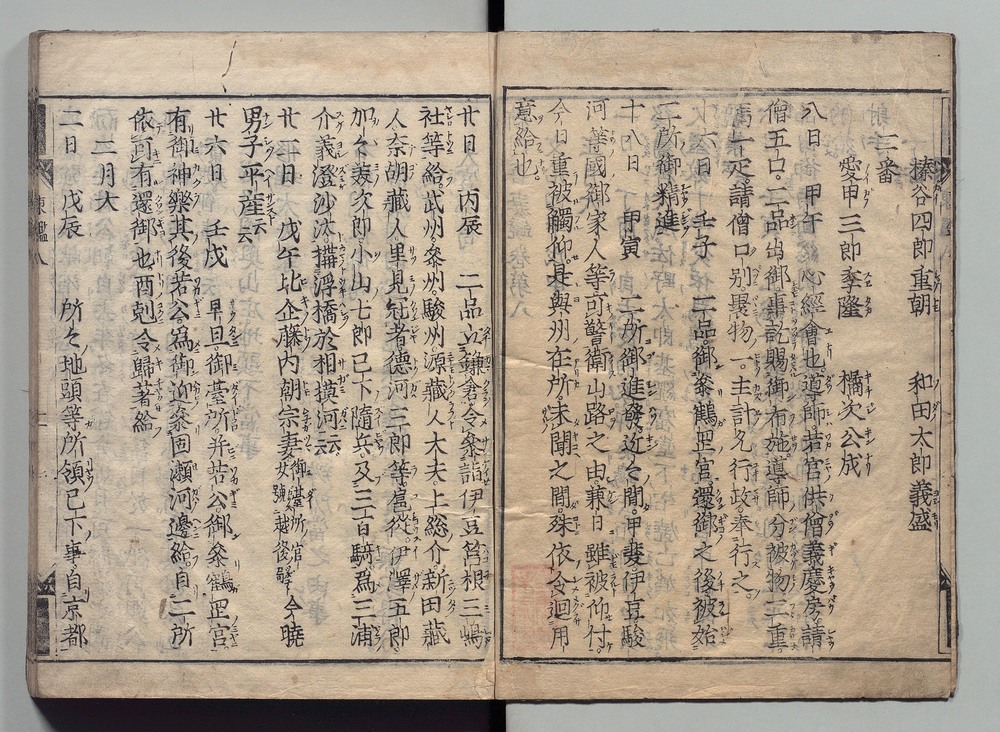 榛谷四郎重朝　和田太郎義盛
二番
愛甲三郎季隆　橘次公成
八日　甲午　心經會也導師若宮供僧義慶房請
僧五口二品出御事訖賜御布施導師分被物二重
馬一疋請僧口別裹物一主計允行政奉行之
十六日　壬子　二品御參鶴罡宮還御之後被始
二所御精進
十八日　甲寅　二所御進發近々間甲斐伊豆駿
河等國御家人等可警衛山路之由兼日雖被仰付
今日重被觸仰是與州在所未聞之間殊依令廻用
意給也
廿日　丙辰　二品立鎌倉令參詣伊豆筥根三嶋
社等給武州參州駿州源藏人大夫上総介新田藏
人奈胡藏人里見冠者德河三郎等扈從伊澤五郎
加々美次郎小山七郎已下隨兵及三百騎爲三浦
介義澄沙汰搆浮橋於相摸河云云
廿二日　戊午比企藤内朝宗妻女御臺所官女號越後局今曉
男子平産云云
廿六日　壬戌　早旦御臺所并若公御參鶴罡宮
有御神樂其後若公爲御迎參固瀬河邊給自二所
依可有還御也酉剋令歸著給
二月大
二日　戊辰　所々地頭等所領已下事自京都
東鑑八